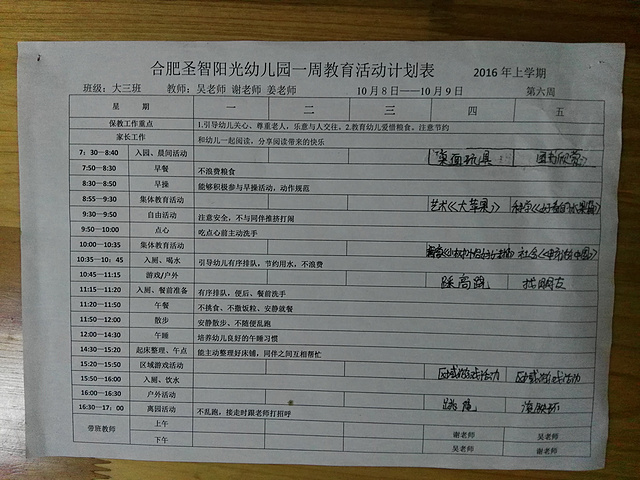 合肥圣智阳光幼儿园一周教育活动计划表 2016 年上学期
班级：大三班 教师：吴老师 谢老师 姜老师 10 月 8 日——10 月 9 日 第六周
星 期 一 二 三 四 五
保教工作重点 1.引导幼儿关心、尊重老人，乐意与人交往。2.教育幼儿爱惜粮食。注意节约
家长工作 和幼儿一起阅读，分享阅读带来的快乐
7：30—8:40 入园、晨间活动 桌面玩具 图书欣赏
7:50—8:30 早餐 不浪费粮食
8:30—8:50 早操 能够积极参与早操活动，动作规范
8:55—9:30 集体教育活动 艺术《大苹果》 科学
9:30—9:50 自由活动 注意安全，不与同伴推挤打闹
9:50—10:00 点心 吃点心前主动洗手
10:00—10:35 集体教育活动 社会
10:35—10：45 入厕、喝水 引导幼儿有序排队，节约用水，不浪费
10:45—11:15 游戏/户外 踩高跷 找朋友
11:15—11:20 入厕、餐前准备 有序排队，便后、餐前洗手
11:20—11:50 午餐 不挑食、不撒饭粒、安静就餐
11:50—12:00 散步 安静散步、不随便乱跑
12:00—14:30 午睡 培养幼儿良好的午睡习惯
14:30—15:20 起床整理、午点 能主动整理好床铺，同伴之间互相帮忙
15:20—15:50 区域游戏活动 区域游戏活动 区域游戏活动
15:50—16:00 入厕、饮水
16:00—16:30 户外活动 跳 滚铁环
16:30—17：00 离园活动 不乱跑，接走时跟老师打招呼
带班教师 上午 谢老师 吴老师
下午 吴老师 谢老师